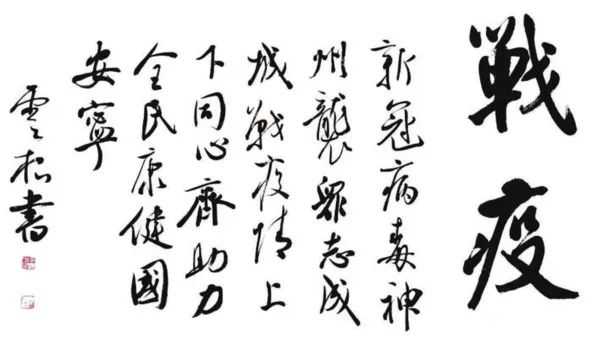 戰疫
新冠病毒神
州襲眾志成
城戰疫情上
下同心齊助力
全民康健國
安寧
雲松書